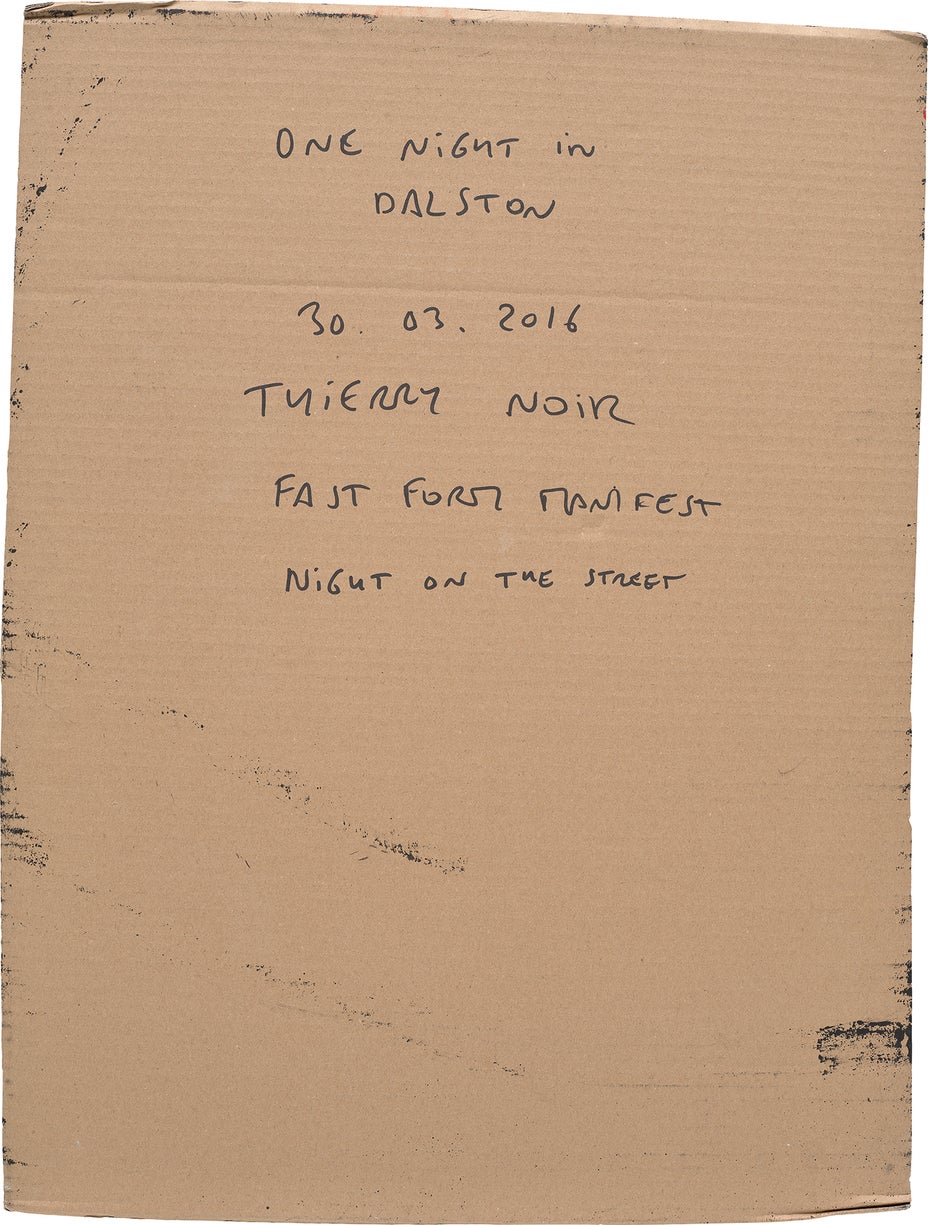 ONE NiGHT in
DALSTON
30. 03. 2016
THiERRY NOiR
FAST FORM MANIFEST
NiGHT ON THE STREET